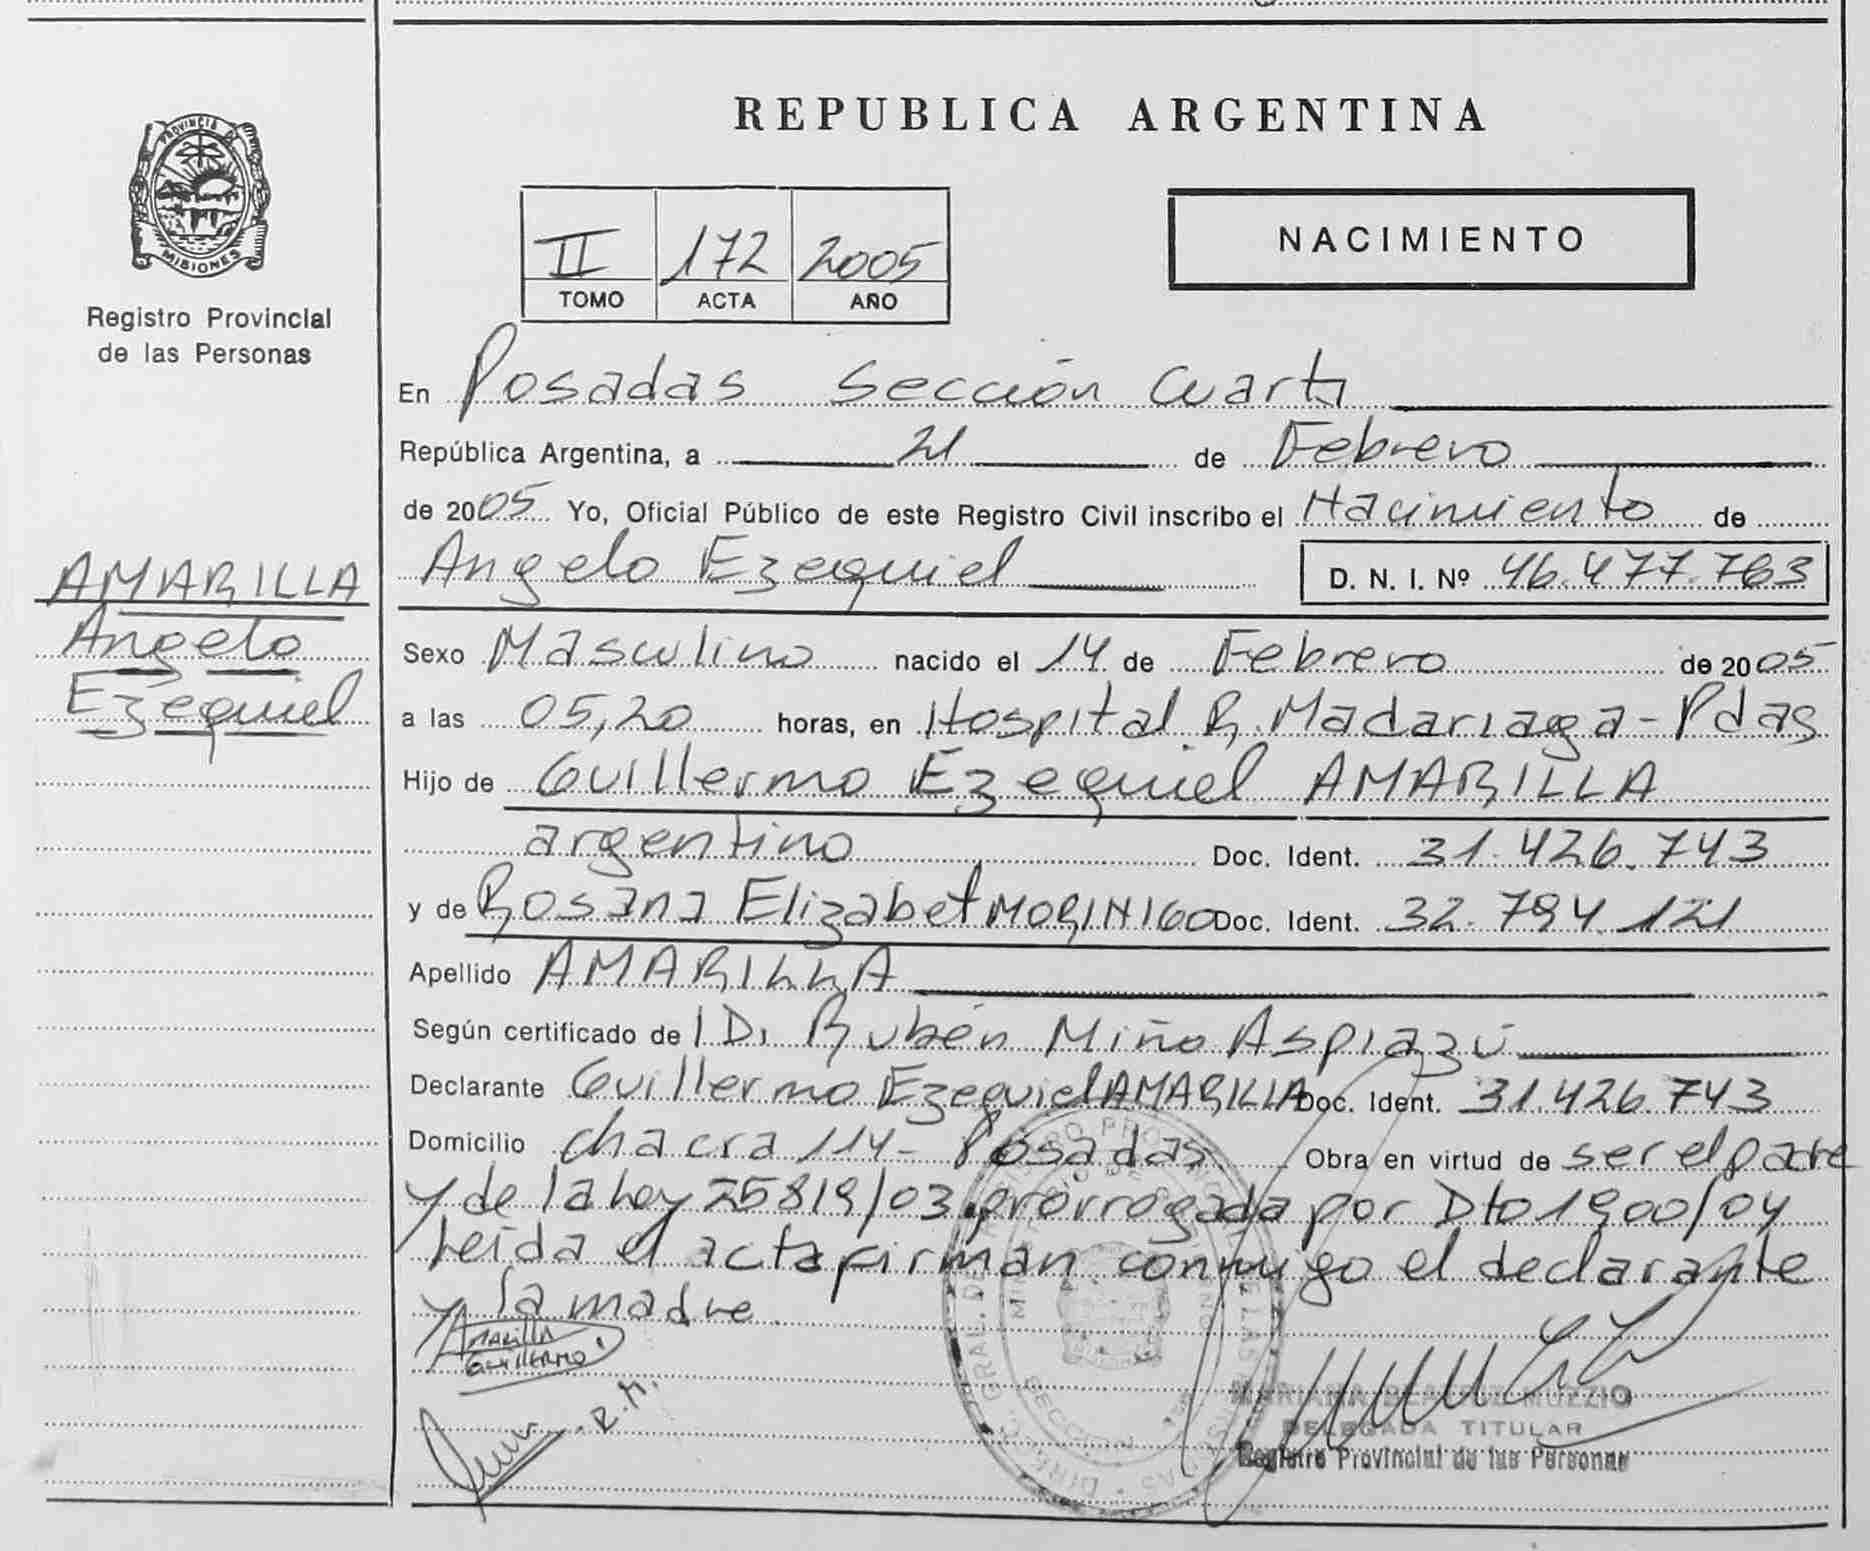 PROVINCIA DE
MISIONES
Registro Provincial
de las Personas
AMARILLA
Angelo
Ezequiel
REPUBLICA ARGENTINA
II 172 2005
TOMO ACTA AÑO
NACIMIENTO
En Posadas Sección Cuarta
República Argentina, a 21 de Febrero
de 2005 Yo, Oficial Público de este Registro Civil inscribo el Nacimiento de
Angelo Ezequiel D. N. I. Nº 46.477.763
Sexo Masculino nacido el 14 de Febrero de 2005
a las 05,20 horas, en Hospital R. Madariaga - Pdas
Hijo de Guillermo Ezequiel AMARILLA
argentino Doc. Ident. 31.426.743
y de Rosana Elizabet MORINIGO Doc. Ident. 32.794.121
Apellido AMARILLA
Según certificado de Rubén Miño Aspiazú
Declarante Guillermo Ezequiel AMARILLA Doc. Ident. 31.426.743
Domicilio chacra 114 - Posadas Obra en virtud de ser el padre
y de la Ley 25819/03 prorrogada por Dto 1900/04
Leída el acta firman conmigo el declarante
y la madre.
AMARILLA
GUILLERMO
R.M.
MARIANA BEATRIZ MUZZIO
DELEGADA TITULAR
Registro Provincial de las Personas